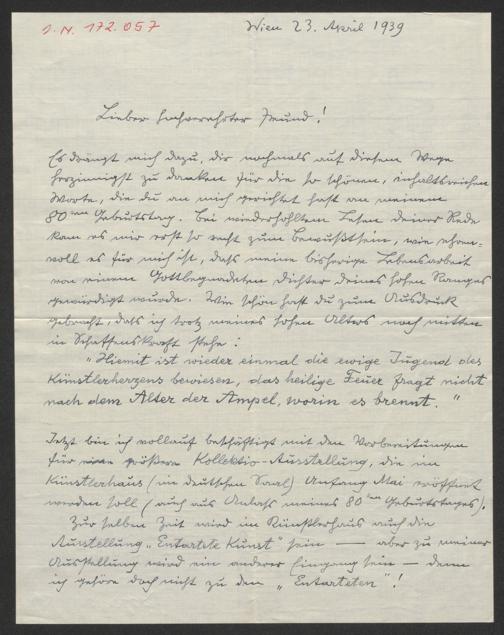 J. N. 172.057
Wien 23. April 1939
Lieber hochverehrter Freund!
Es drängt mich dazu, dir nochmals auf diesem Wege
herzinnigst zu danken für die so schönen, inhaltsreichen
Worte, die du an mich gerichtet hast an meinem
80ten Geburtstag. Bei wiederholtem Lesen deiner Rede
kam es mir erst so recht zum Bewußtsein, wie ehren-
voll es für mich ist, daß meine bisherige Lebensarbeit
von einem Gottbegnadeten Dichter deines hohen Ranges
gewürdigt wurde. Wie schön hast du zum Ausdruck
gebracht, daß ich trotz meines hohen Alters noch mitten
in Schaffenskraft stehe:
„Hiemit ist wieder einmal die ewige Jugend des
Künstlerherzens bewiesen, das heilige Feuer fragt nicht
nach dem Alter der Ampel, worin es brennt."
Jetzt bin ich vollauf beschäftigt mit den Vorbereitungen
für eine größere Kollektiv-Ausstellung, die im
Künstlerhaus (im deutschen Saal) Anfang Mai eröffnet
werden soll (auch aus Anlaß meines 80ten Geburtstages).
Zur selben Zeit wird im Künstlerhaus auch die
Ausstellung „Entartete Kunst" sein — aber zu meiner
Ausstellung wird ein anderer Eingang sein — denn
ich gehöre doch nicht zu den „Entarteten"!